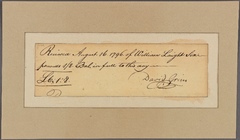 Received August 16 1796 of William Leight Six
pounds 1/8 Bal in full to this day
£6.1.8
David